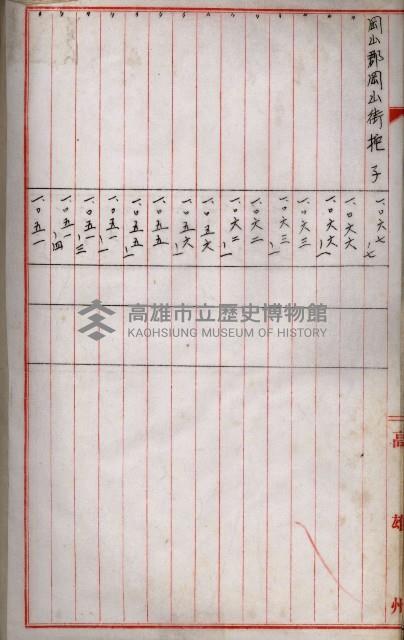 岡山郡岡山街挖子
一、〇六七ノ七
一、〇六六
一、〇六六ノ一
一、〇六三
一、〇六三ノ一
一、〇六二
一、〇六二ノ一
一、〇五六
一、〇五六ノ一
一、〇五五
一、〇五五ノ一
一、〇五一ノ一
一、〇五一ノ三
一、〇五一ノ四
一、〇五一
高雄州
高雄市立歷史博物館
KAOHSIUNG MUSEUM OF HISTORY